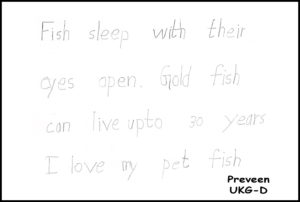 Fish sleep with their
eyes open. Gold fish
can live upto 30 years
I love my pet fish
Preveen
UKG-D